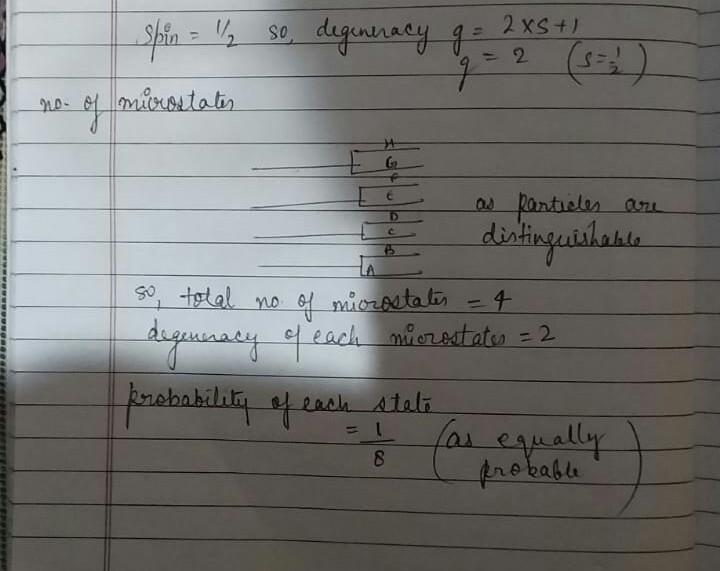 spin = 1/2 so, degeneracy g = 2×s+1
g = 2 (s=1/2)
no. of microstates
H
G
F
E
D
C
B
A
as particles are
distinguishable
so, total no. of microstates = 4
degeneracy of each microstates = 2
probability of each state
= 1/8 (as equally
probable)